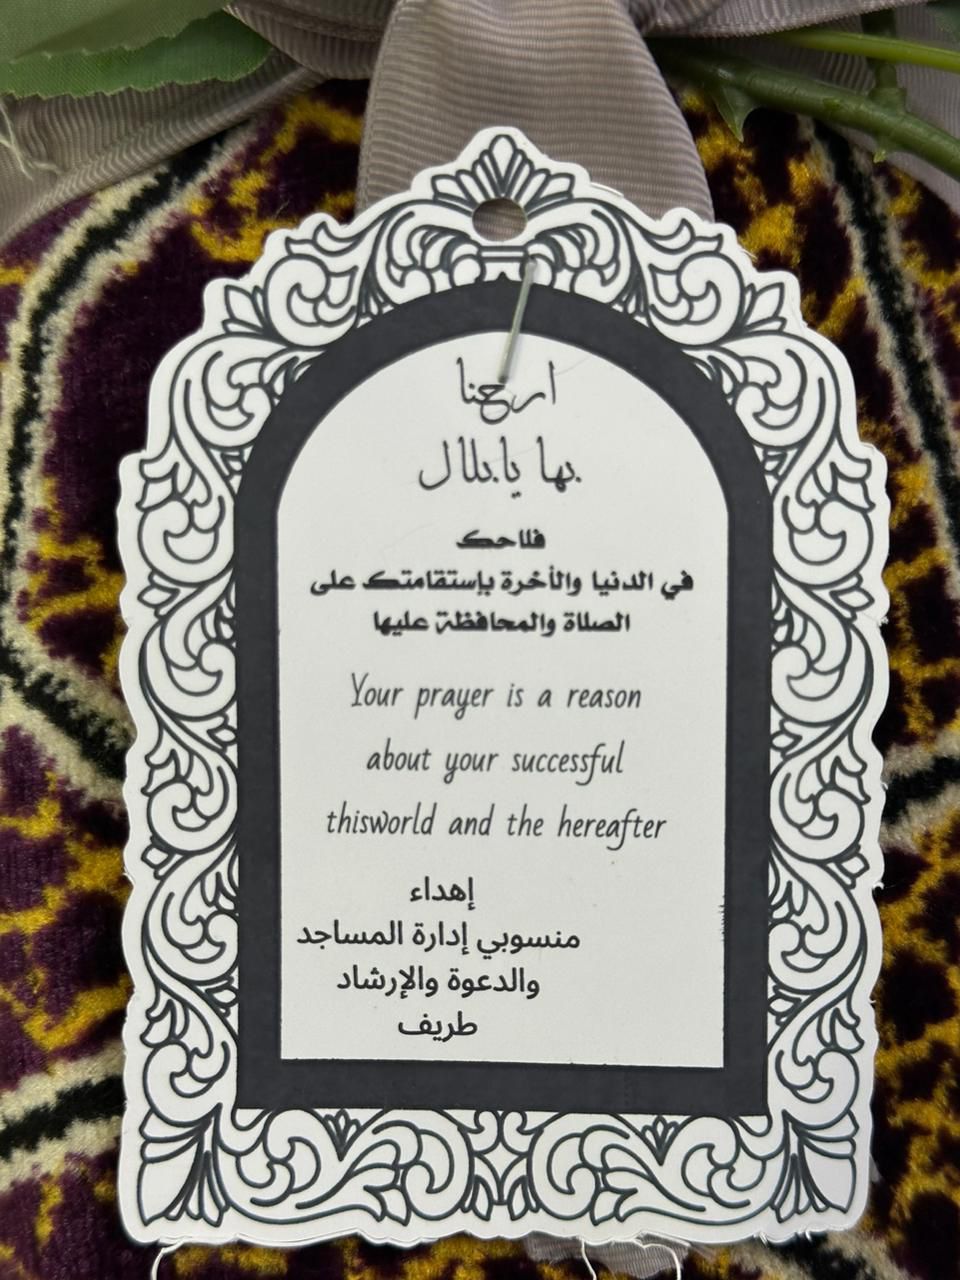 ارحنا
بها يا بلال
فلاحك
في الدنيا والأخرة بإستقامتك على
الصلاة والمحافظة عليها
Your prayer is a reason
about your successful
thisworld and the hereafter
إهداء
منسوبي إدارة المساجد
والدعوة والإرشاد
طريف